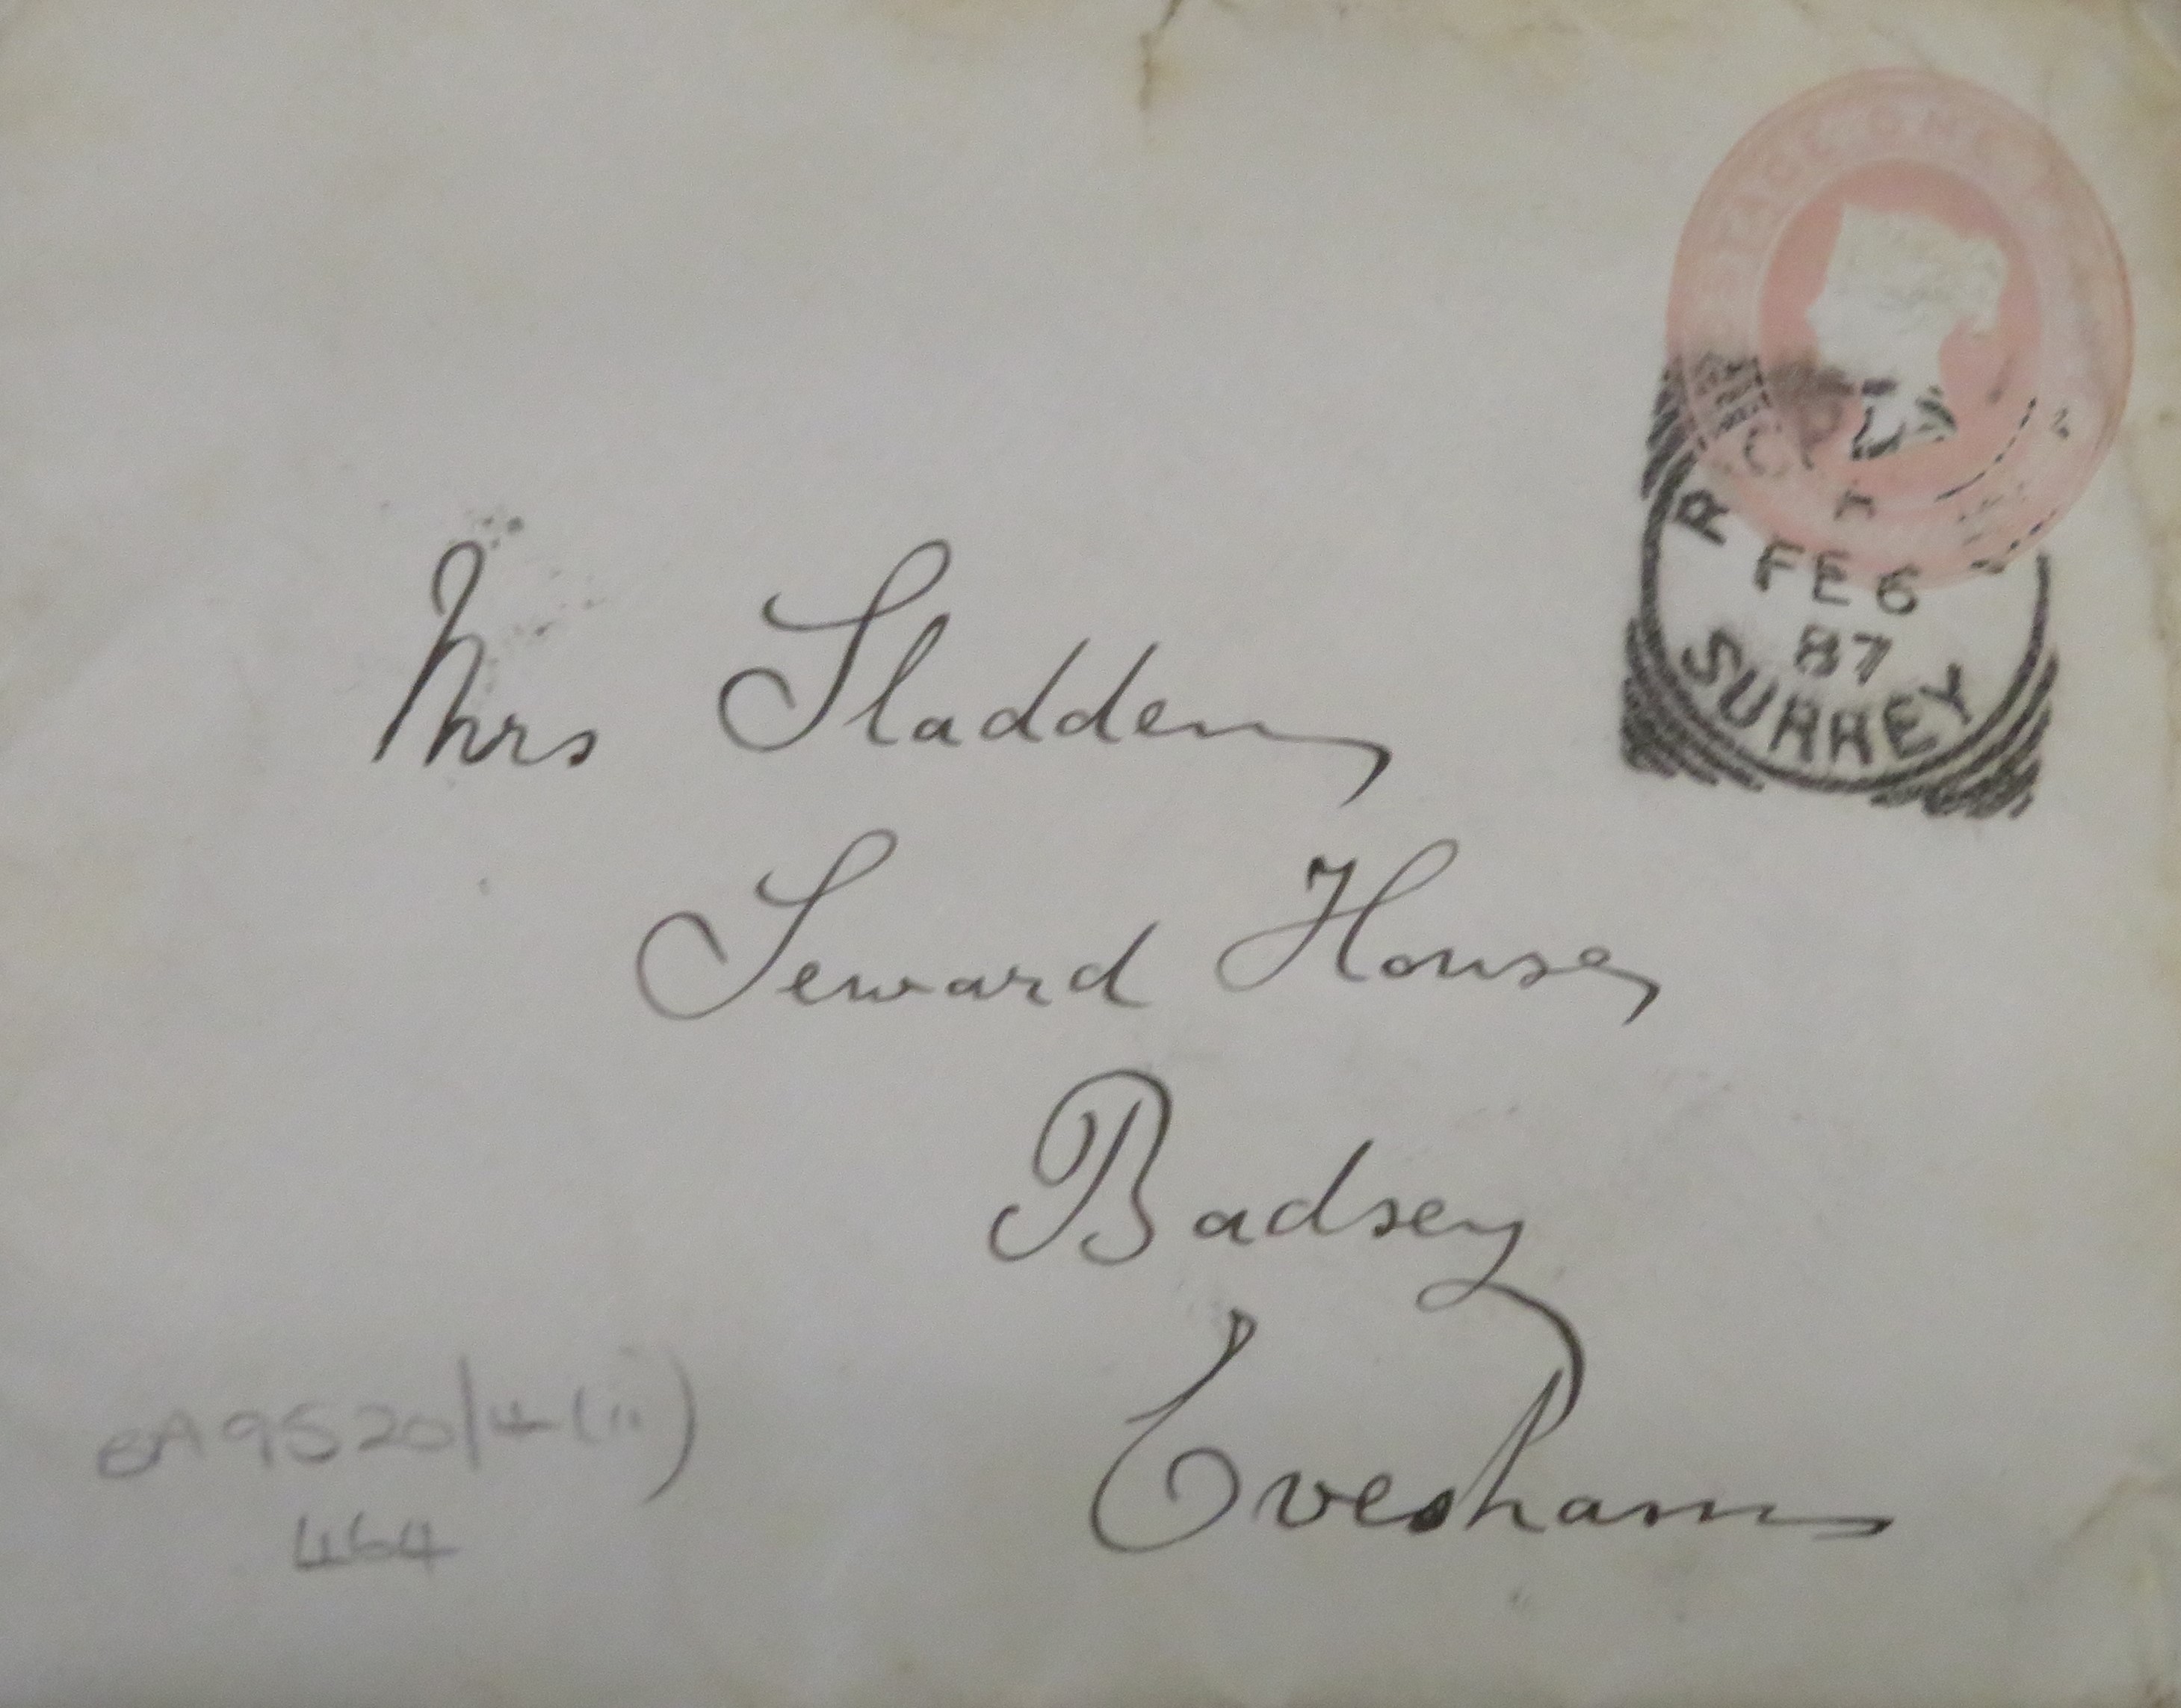 POSTAGE ONE
R
A
FE 6
87
SURREY
Mrs Sladden
Seward House
Badsey
Evesham
BA 9520/4 (ii)
464